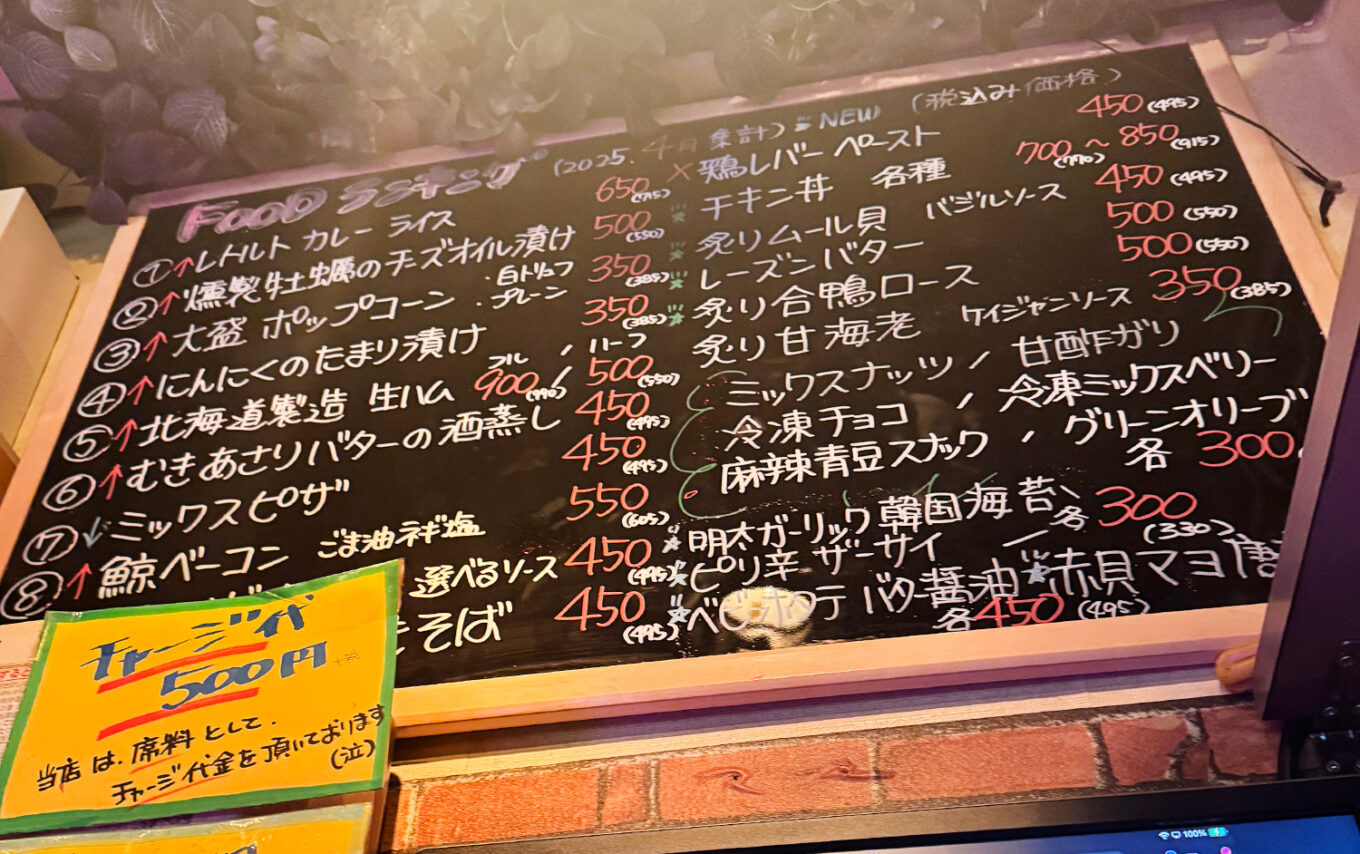 FOODランキング (2025. 4月集計) NEW (税込み価格)
①↑レトルト カレー ライス 650(715)
②↑燻製牡蠣のチーズオイル漬け 500(550)
③↑大盛 ポップコーン ・白トリュフ ・プレーン 350(385)
④↑にんにくのたまり漬け 350(385)
⑤↑北海道製造 生ハム フル 900(990) / ハーフ 500(550)
⑥↑むきあさりバターの酒蒸し 450(495)
⑦↓ミックスピザ 450(495)
⑧↑鯨ベーコン ごま油ネギ塩 550(605)
選べるソース 450(495)
そば 450(495)
×鶏レバーペースト 450(495)
チキン丼 各種 700(770)〜850(915)
炙りムール貝 バジルソース 450(495)
レーズンバター 500(550)
炙り合鴨ロース 500(550)
炙り甘海老 ケイジャンソース 350(385)
ミックスナッツ / 甘酢ガリ
冷凍チョコ / 冷凍ミックスベリー
麻辣青豆スナック / グリーンオリーブ
各 300
明太ガーリック韓国海苔
ピリ辛 ザーサイ 各300(330)
ベビーホタテ バター醤油 赤貝マヨ
各450(495)
チャージ代
500円
当店は、席料として、
チャージ代金を頂いております
(泣)
100%